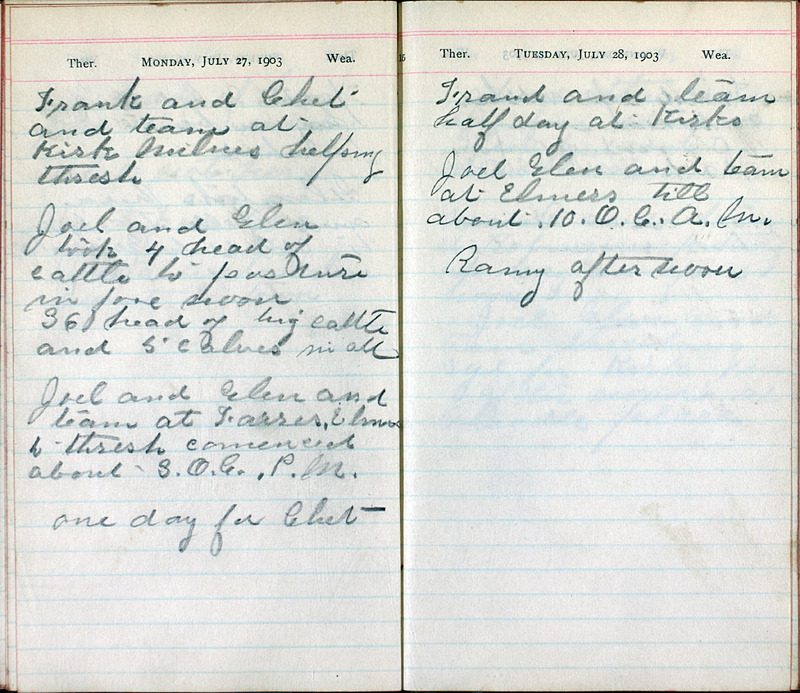 Ther. MONDAY, JULY 27, 1903 Wea.
Frank and Chet
and team at
Kirk Milnes helping
thresh
Joel and Glen
took 4 head of
cattle to pasture
in fore noon
36 head of big cattle
and 5 calves in all
Joel and Glen and
team at Farrer, Elmer
to thresh comenced
about 3.O.C., P.M.
one day for Chet
Ther. TUESDAY, JULY 28, 1903 Wea.
and team
half day at Kirks
Joel Glen and team
at Elmers till
about .10.O.C.A.M.
Rainy after noon